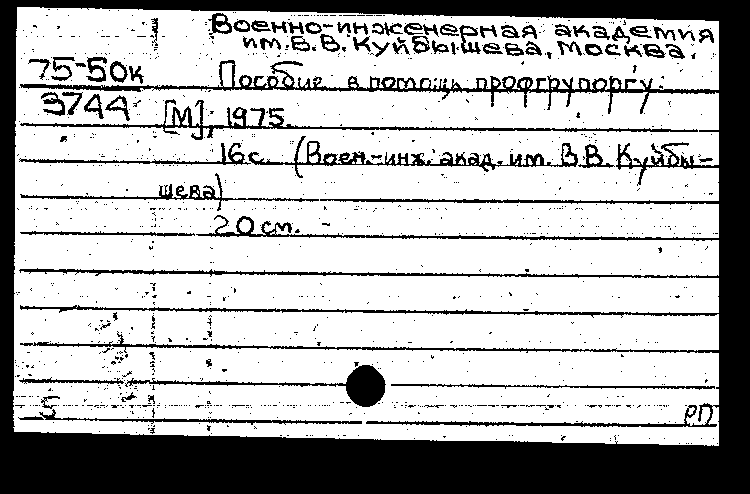 Военно-инженерная академия
им. В.В. Куйбышева, Москва.
75-50к
3744
Пособие в помощь профгрупоргу.
[М], 1975.
16 с. (Воен.-инж. акад. им. В.В. Куйбы-
шева)
20 см. -
5
РП